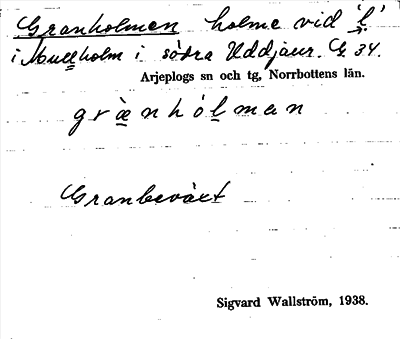 Granholmen holme vid 'l'
i Mullholm i södra Uddjaur. G 34.
Arjeplogs sn och tg, Norrbottens län.
grànhólmen
Granbeväxt
Sigvard Wallström, 1938.